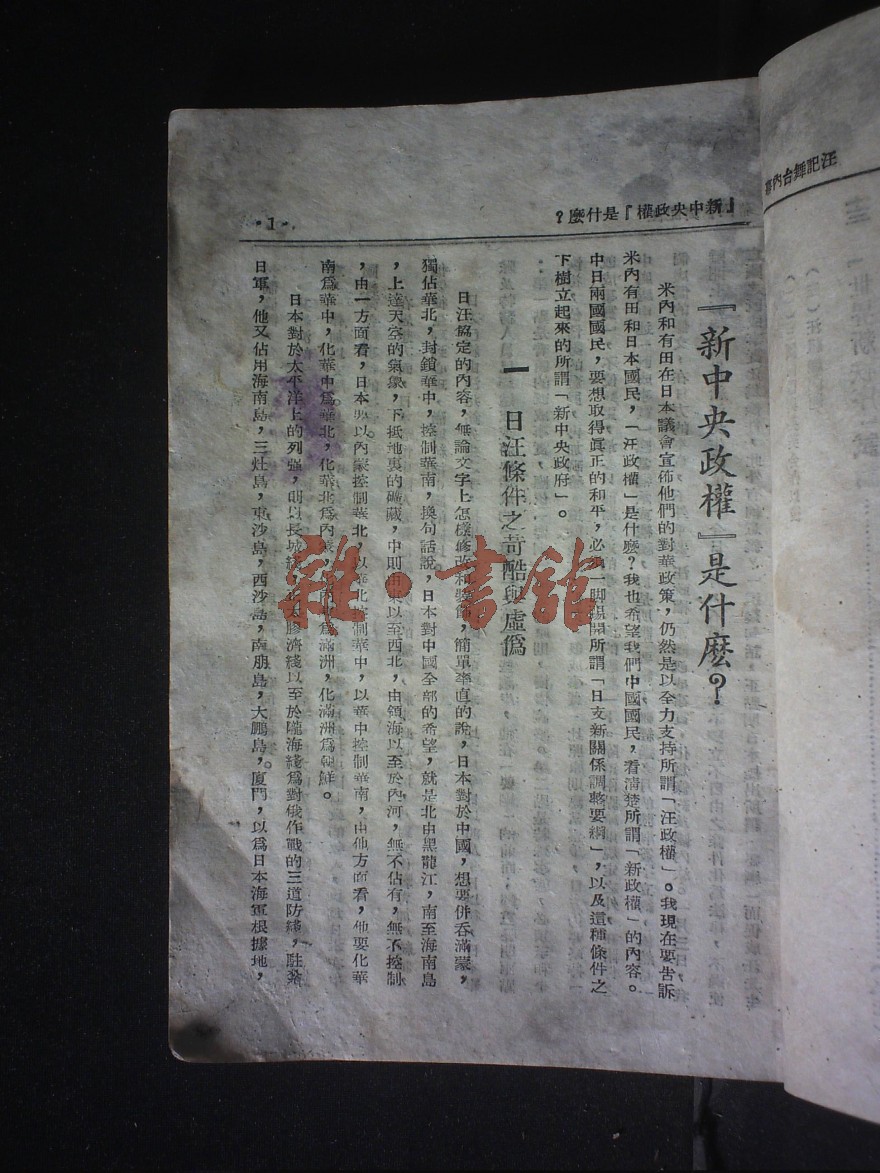 汪記舞台內幕
『新中央政權』是什麼？
·1·
『新中央政權』是什麼？
米內和有田在日本議會宣佈他們的對華政策，仍然是以全力支持所謂「汪政權」。我現在要告訴
米內有田和日本國民，「汪政權」是什麼？我也希望我們中國國民，看清楚所謂「新政權」的內容。
中日兩國國民，要想取得眞正的和平，必須一脚踢開所謂「日支新關係調整要綱」，以及這種條件之
下樹立起來的所謂「新中央政府」。
一 日汪條件之苛酷與虛僞
日汪協定的內容，無論文字上怎樣修改和裝飾，簡單率直的說，日本對於中國，想要併吞滿蒙，
獨佔華北，封鎖華中，控制華南，換句話說，日本對中國全部的希望，就是北由黑龍江，南至海南島
，上達天空的氣象，下抵地裏的礦藏，中則由東以至西北，由領海以至於內河，無不佔有，無不控制
，由一方面看，日本要以內蒙控制華北，以華北控制華中，以華中控制華南，由他方面看，他要化華
南爲華中，化華中爲華北，化華北爲內蒙，化內蒙爲滿洲，化滿洲爲朝鮮。
日本對於太平洋上的列强，則以長城綫膠濟綫以至於隴海綫爲對俄作戰的三道防綫，駐紮
日軍，他又佔用海南島，三灶島，東沙島，西沙島，南朋島，大鵬島，廈門，以爲日本海軍根據地，
雜·書館